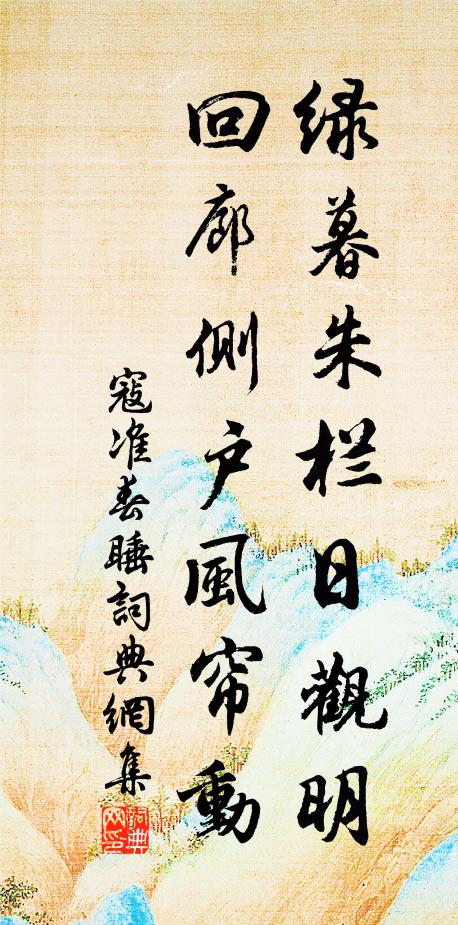 绿暮朱栏日觀明
回廊侧户風帘動
寇准春睡詞典網集
詞典
网印